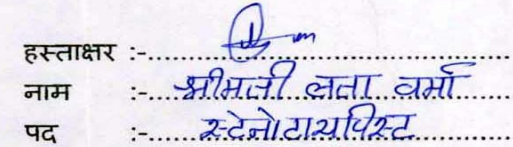 हस्ताक्षर :-..........
नाम :-...श्रीमती लता वर्मा.....
पद :-......स्टेनोटायपिस्ट..........